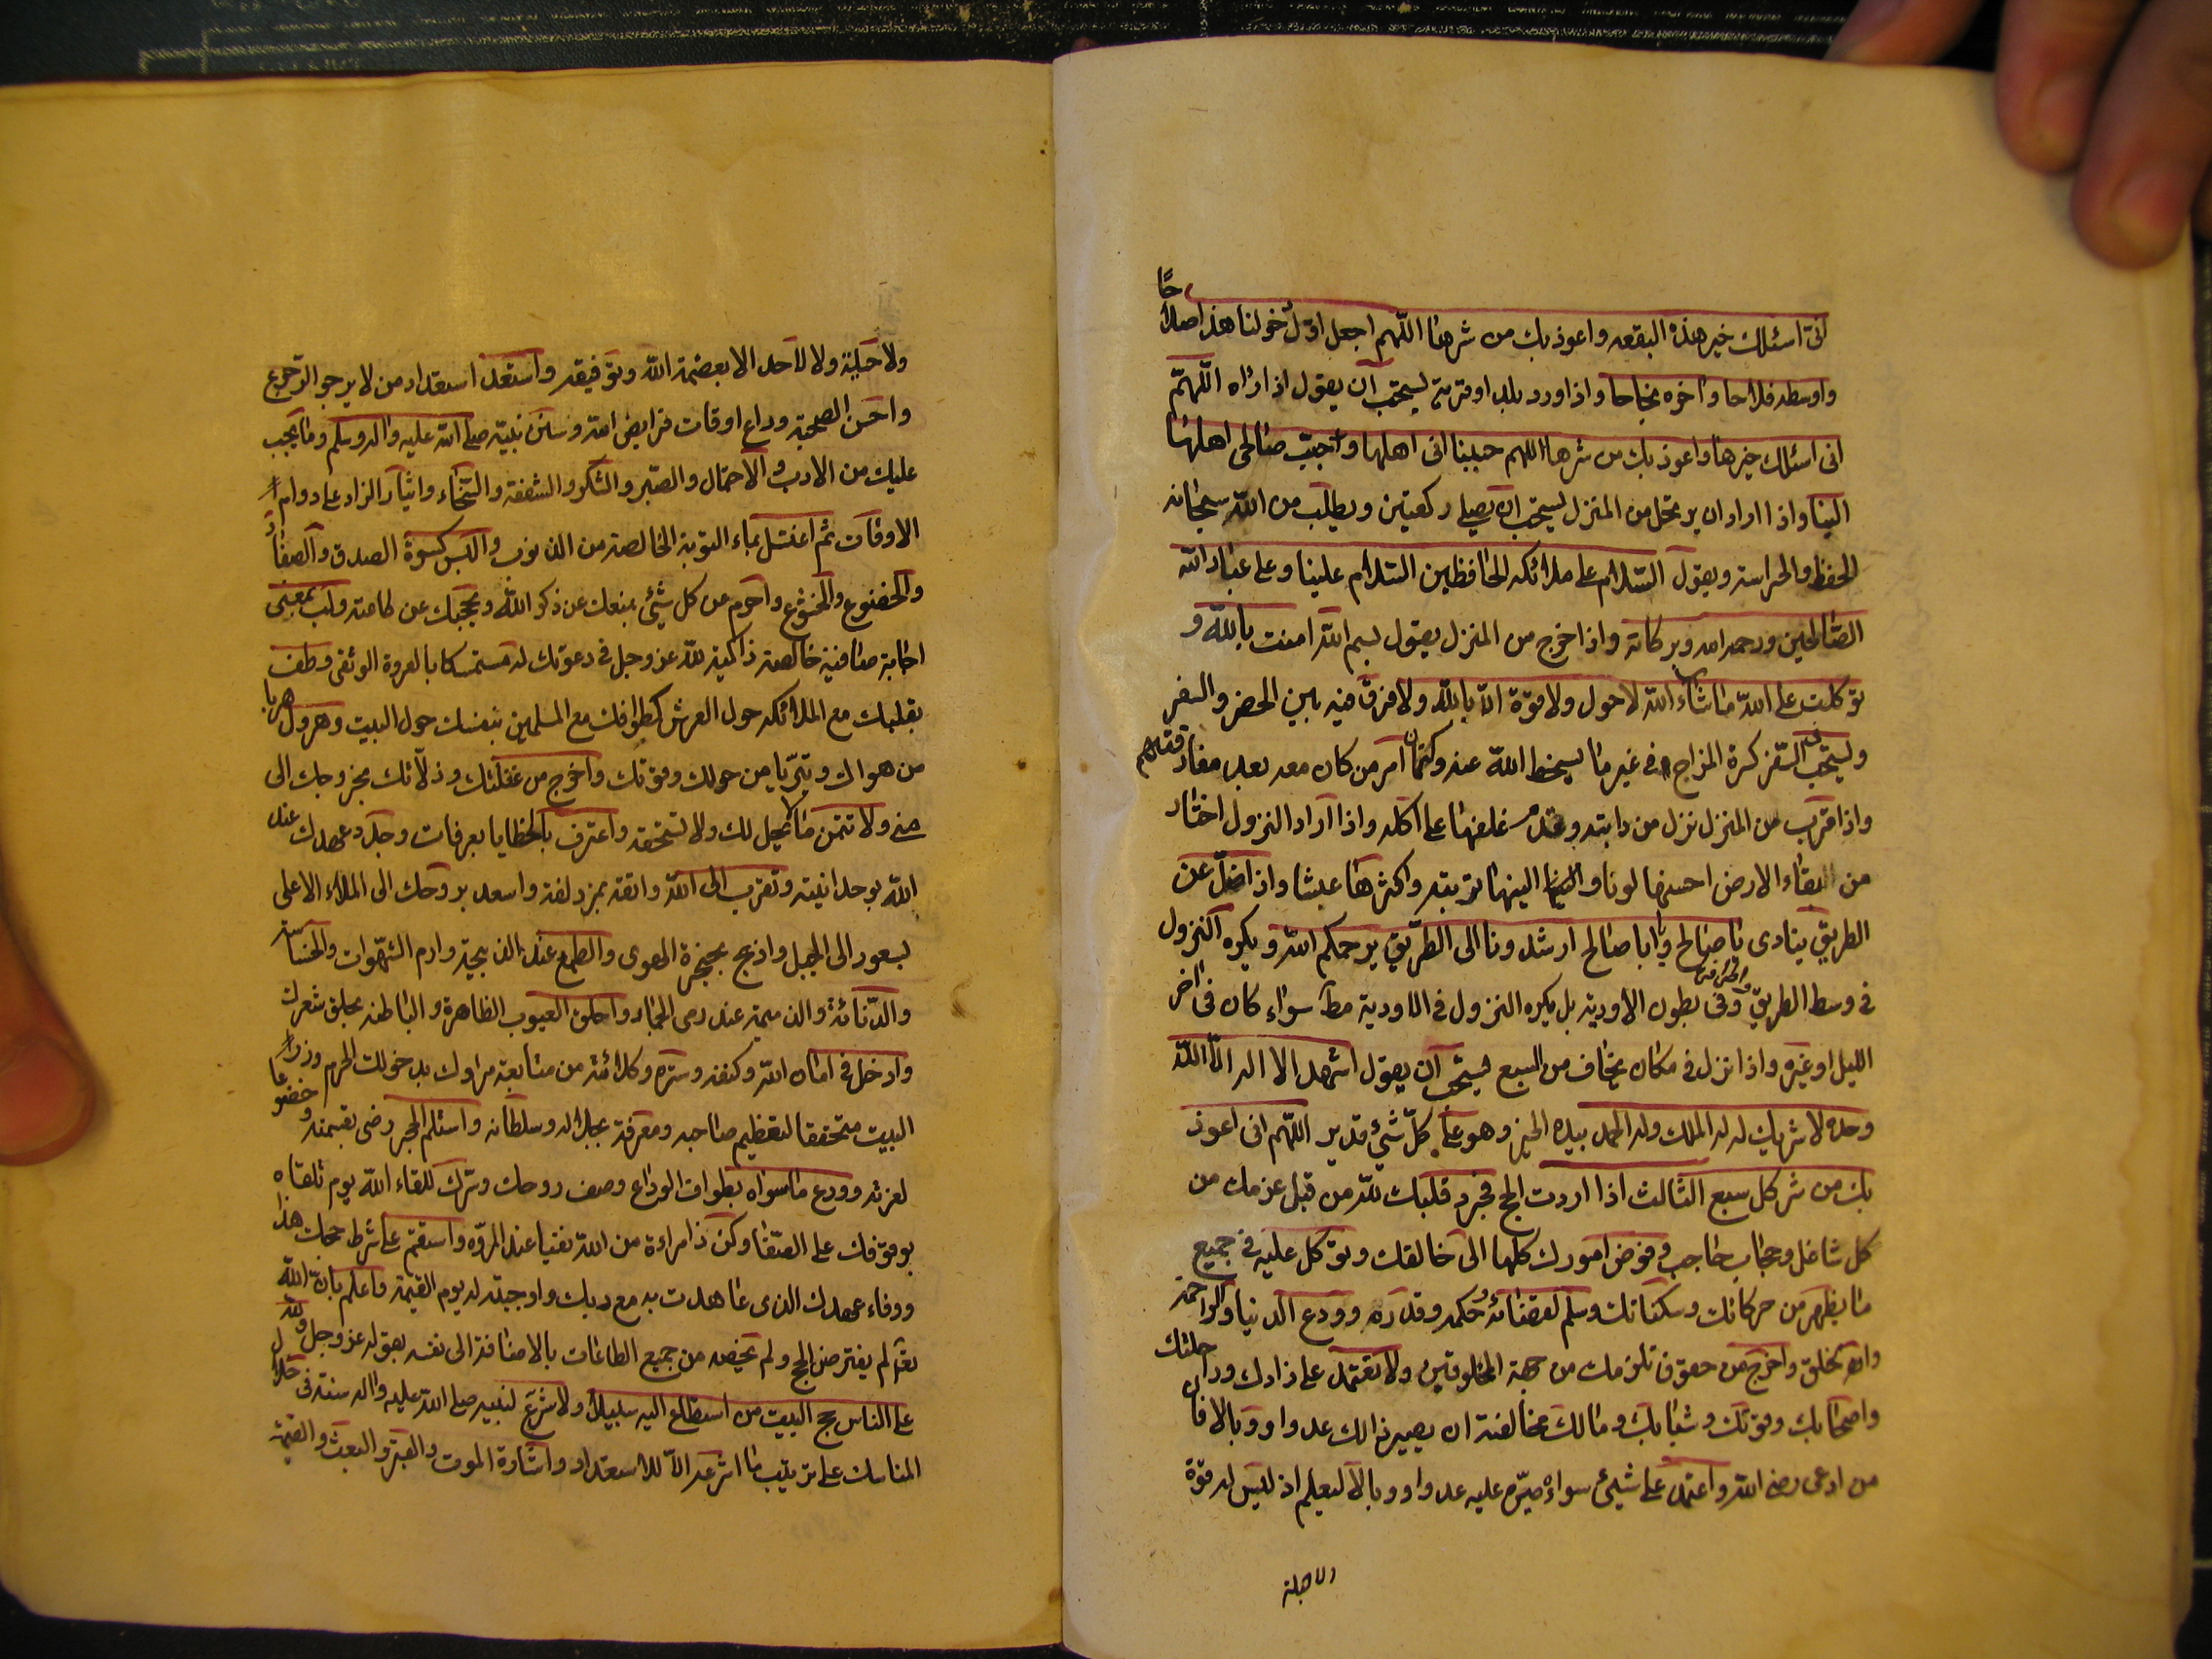 انی اسئلك خیر هذه البقعه واعوذ بك من شرها اللّهم اجعل اوّل دخولنا هذا صلاحًا
واوسطه فلاحا واخره نجاحا واذا ورد بلد او قرية يستحب ان يقول اذا راه اللّهمّ
انی اسئلك خيرها واعوذ بك من شرها اللهم حببنا الی اهلها وحبّب صالحی اهلها
الینا واذا اراد ان يرتحل من المنزل يستحب ان يصلی ركعتين ويطلب من اللّه سبحانه
الحفظ والحراسة ويقول السّلام علی ملائكه الحافظين السّلام علينا وعلی عباد اللّه
الصّالحين ورحمه الله وبركاته واذا خرج من المنزل يقول بسم اللّه امنت باللّه و
توكلت علی اللّه ما شاء اللّه لا حول ولا قوة الّا باللّه ولا فرق فيه بين الحضر والسفر
ويستحب فی السّفر كثرة المزاح فی غير ما يسخط اللّه عنه وكتمان امر من كان معه بعد مفارقتهم
واذا قرب من المنزل نزل من دابته وقدم علفها علی اكله واذا اراد النزول اختار
من البقاء الارض احسنها لونا والينها تربته واكثرها عشبا واذا ضلّ عن
الطريق ينادی يا صالح ويا ابا صالح ارشدونا الی الطّريق يرحمكم اللّه ويكره النزول
فی وسط الطريق واطرافه وفی بطون الاودية بل يكره النزول فی الاودية مط سواء كان فی اخر
الليل او غيره واذا نزل فی مكان يخاف من السبع يستحب ان يقول اشهد الا اله الّا اللّه
وحده لا شريك له له الملك وله الحمد بيده الخير وهو علی كلّ شیء قدير اللّهم انی اعوذ
بك من شر كل سبع الثالث اذا اردت الحج فجرد قلبك للّه من قبل عزمك من
كل شاغل وحجاب حاجب وفوض امورك كلها الی خالقك وتوكل عليه فی جميع
ما يظهر من حركاتك وسكناتك وسلم لقضائه وحكمه وقدره وودع الدنيا والراحة
والخلق واخرج من حقوق تلزمك من جهة المخلوقين ولا تعتمد علی زادك وراحلتك
واصحابك وقوتك وشبابك ومالك مخافة ان يصير ذالك عدوا ووبالا فان
من ادعی رضی اللّه واعتمد علی شیئ سواه صيّره عليه عدوا ووبالا ليعلم اذ ليس له قوة
ولا حيلة
ولا حيلة ولا لاحد الا بعصمة اللّه وتوفيقه واستعد استعداد من لا يرجو الرّجوع
واحسن الصحبة وراع اوقات فرايض اللّه وسنن نبيّه صلی اللّه عليه واله وسلم وما يجب
عليك من الادب والاحتمال والصّبر والشّكر والشفقة والسّخاء وايثار الزاد علی دوام
الاوقات ثم اغتسل بماء التوبة الخالصة من الذنوب والبس كسوة الصدق والصفا
والخضوع والخشوع واحرم من كل شیئ يمنعك عن ذكر اللّه ويحجبك عن طاعته ولب بمعنی
اجابة صافية خالصة ذاكية للّه عز وجل فی دعوتك له متمسكا بالعروة الوثقی وطف
بقلبك مع الملائكه حول العرش كطوافك مع المسلمين بنفسك حول البيت وهرول هربا
من هواك وتبرّيا من حولك وقوتك واخرج من غفلتك وذلّاتك بخروجك الی
منی ولا تتمن ما لا يحل لك ولا تستحقه واعترف بالخطايا بعرفات وجدد عهدك عند
اللّه بوحدانيته وتقرب الی اللّه واتقه بمزدلفة واصعد بروحك الی الملاء الاعلی
بصعودك الی الجبل واذبح حنجرة الهوی والطمع عند الذبيحة وارم الشّهوات والخساسة
والدّنائة والذميمة عند رمی الجمار واحلق العيوب الظاهرة والباطنه بحلق شعرك
وادخل فی امان اللّه وكنفه وستره وكلائته من متابعة مرادك بدخولك الحرم وزر
البيت متحققا لتعظيم صاحبه ومعرفة جلاله وسلطانه واستلم الحجر رضی بقسمته وخضوعا
لعزته وودع ما سواه بطواف الوداع وصف روحك وسرك للقاء اللّه يوم تلقاه
بوقوفك علی الصّفا وكن ذا مراءة من اللّه نقيا عند المروّه واستقم علی شرط حجك هذا
ووفاء عهدك الذی عاهدت به مع ربك واوجبته له يوم القيمة واعلم بانّ اللّه
تعا لم يفترض الحج ولم يخصه من جميع الطاعات بالاضافة الی نفسه بقوله عز وجل وللّه
علی الناس حج البيت من استطاع اليه سبيلا ولا شرع لنبيه صلی اللّه عليه واله سنة فی خلال
المناسك علی ترتيب ما شرعه الّا للاستعداد واشارة الموت والقبر والبعث والقيمة